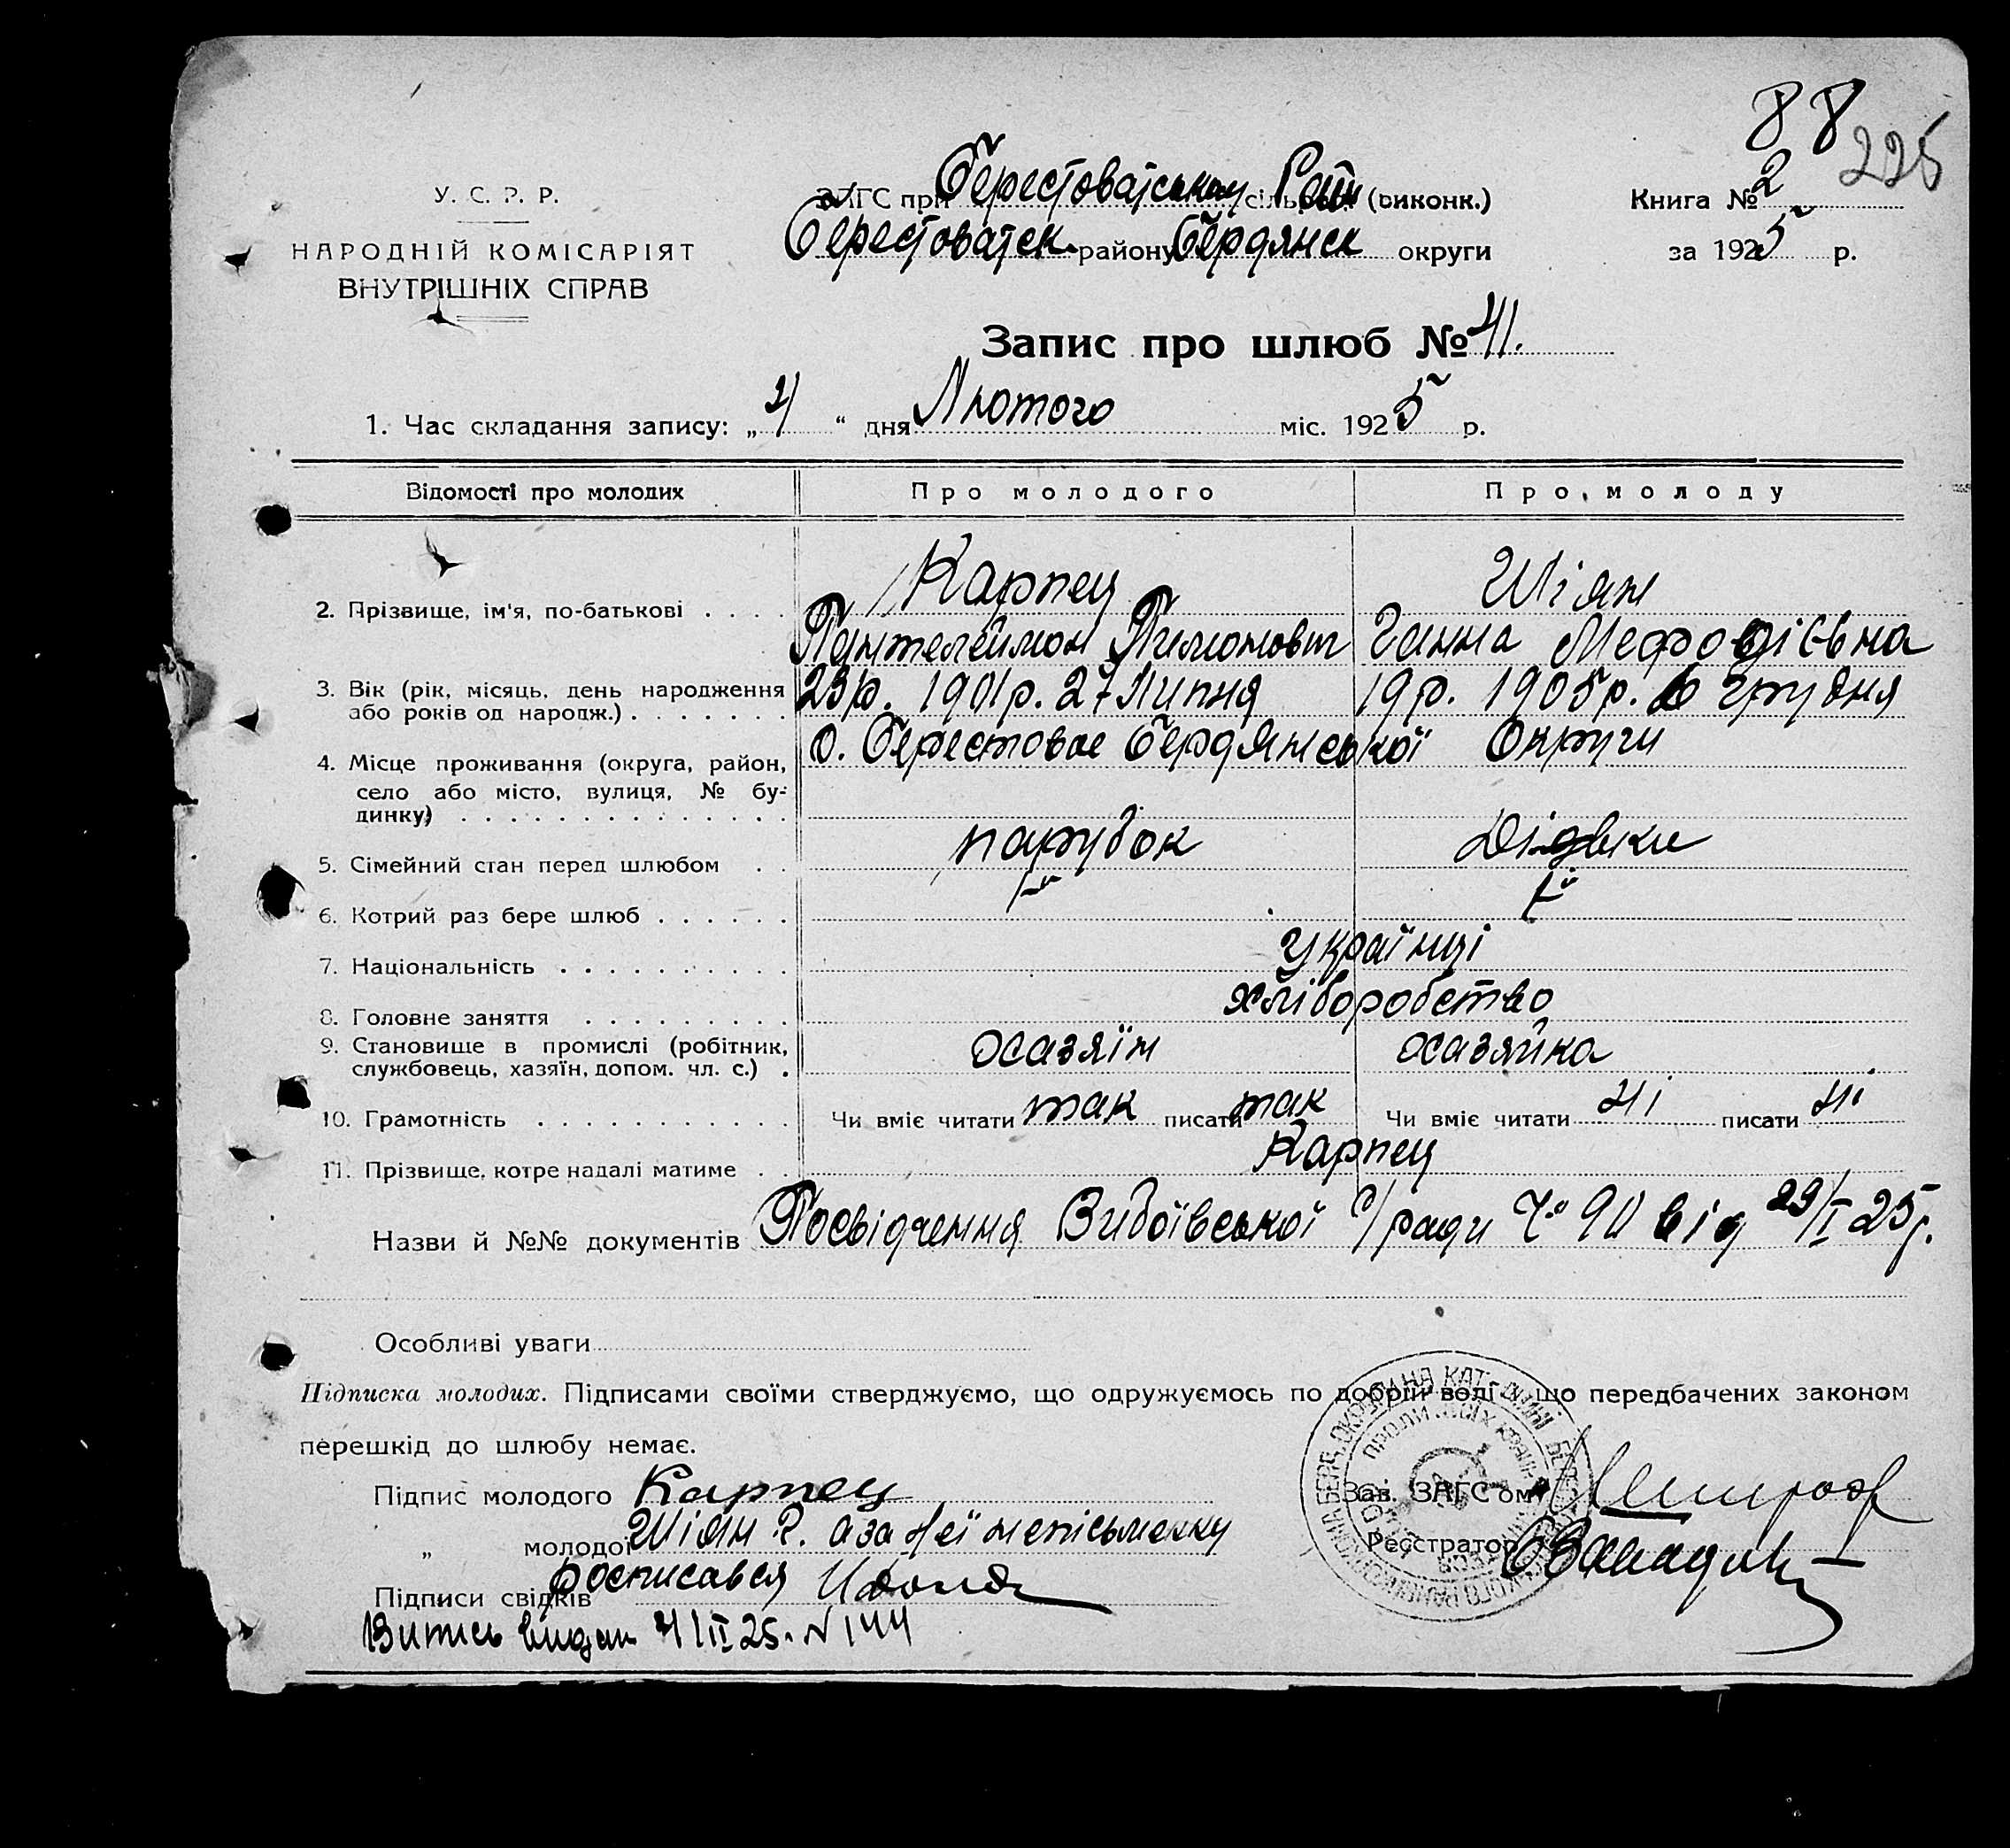 88
225
У. С. Р. Р.
НАРОДНІЙ КОМІСАРІЯТ
ВНУТРІШНІХ СПРАВ
ЗАГС при Берестоватському Рай (виконк.)
Берестоватск. району Бердянск округи
Книга № 2
за 1925 р.
Запис про шлюб № 41.
1. Час складання запису: „ 4 “ дня Лютого міс. 1925 р.
Відомості про молодих
Про молодого
Про молоду
2. Прізвище, ім'я, по-батькові . . . .
Карпец
Пантелеймон Пимонович
Шіян
Ганна Мефодієвна
3. Вік (рік, місяць, день народження або років од народж.) . . . . . . .
23 р. 1901 р. 27 Липня
19 р. 1905 р. 6 Грудня
4. Місце проживання (округа, район, село або місто, вулиця, № будинку) . . . . . . . . . . . . . .
с. Берестовое Бердянської Округи
5. Сімейний стан перед шлюбом . .
парубок
Дівка
6. Котрий раз бере шлюб . . . . . .
I й
I й
7. Національність . . . . . . . . . .
Українці
8. Головне заняття . . . . . . . . .
хліборобство
9. Становище в промислі (робітник, службовець, хазяїн, допом. чл. с.) .
хазяїн
хазяйка
10. Грамотність . . . . . . . . . . .
Чи вміє читати так писати так
Чи вміє читати ні писати ні
11. Прізвище, котре надалі матиме . .
Карпец
Назви й №№ документів Посвідчення с/ради Ч° 90 від 29/I 25 р.
Особливі уваги
Підписка молодих. Підписами своїми стверджуємо, що одружуємось по добрій волі і що передбачених законом
перешкід до шлюбу немає.
Підпис молодого Карпец
„ молодої Шіян Г. а за неї непісьменну
росписався
Підписи свідків
Зав. ЗАГС'ом
Реєстратор
Витись видан 4/II 25. № 144